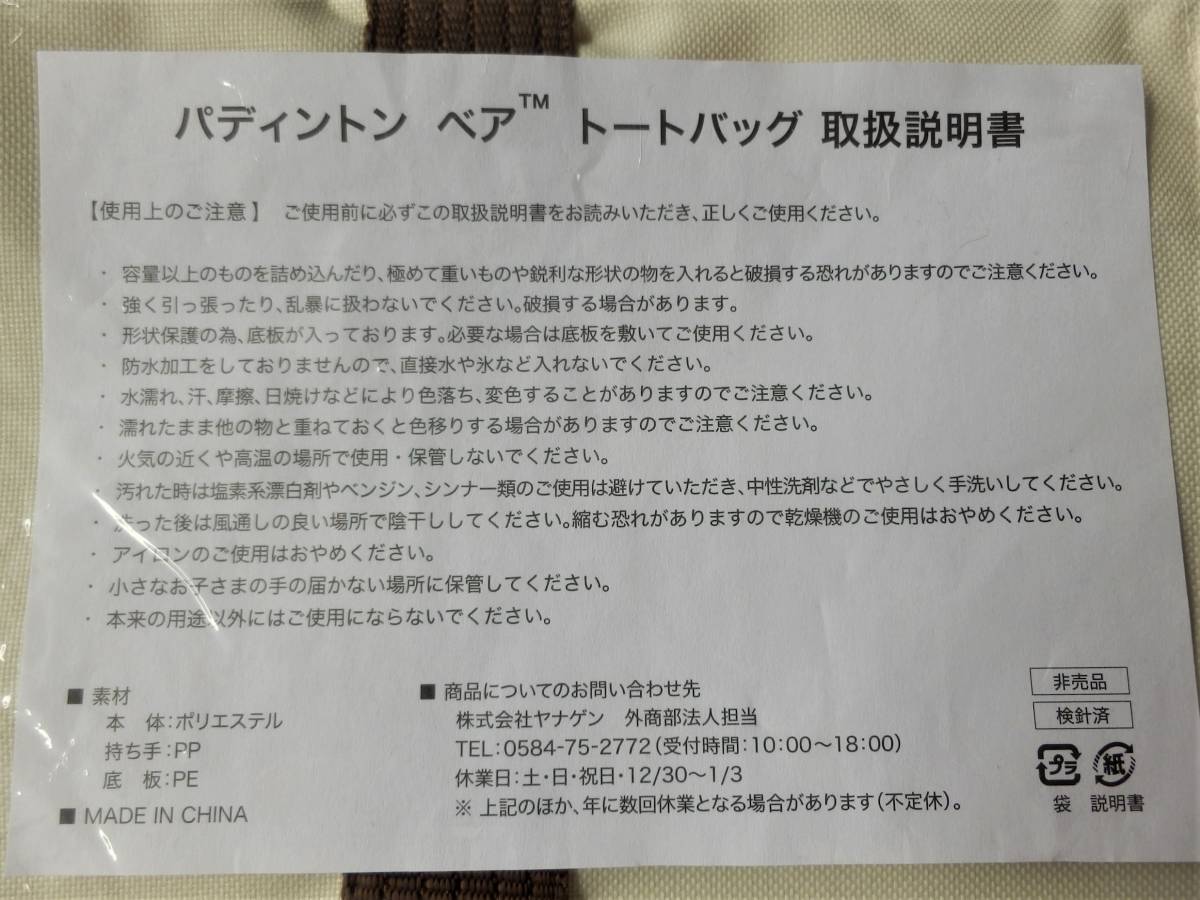 パディントン ベア™ トートバッグ 取扱説明書
【使用上のご注意】 ご使用前に必ずこの取扱説明書をお読みいただき、正しくご使用ください。
・ 容量以上のものを詰め込んだり、極めて重いものや鋭利な形状の物を入れると破損する恐れがありますのでご注意ください。
・ 強く引っ張ったり、乱暴に扱わないでください。破損する場合があります。
・ 形状保護の為、底板が入っております。必要な場合は底板を敷いてご使用ください。
・ 防水加工をしておりませんので、直接水や氷など入れないでください。
・ 水濡れ、汗、摩擦、日焼けなどにより色落ち、変色することがありますのでご注意ください。
・ 濡れたまま他の物と重ねておくと色移りする場合がありますのでご注意ください。
・ 火気の近くや高温の場所で使用・保管しないでください。
・ 汚れた時は塩素系漂白剤やベンジン、シンナー類のご使用は避けていただき、中性洗剤などでやさしく手洗いしてください。
・ 洗った後は風通しの良い場所で陰干ししてください。縮む恐れがありますので乾燥機のご使用はおやめください。
・ アイロンのご使用はおやめください。
・ 小さなお子さまの手の届かない場所に保管してください。
・ 本来の用途以外にはご使用にならないでください。
■ 素材
本 体：ポリエステル
持ち手：PP
底 板：PE
■ MADE IN CHINA
■ 商品についてのお問い合わせ先
株式会社ヤナゲン 外商部法人担当
TEL：0584-75-2772（受付時間：10:00～18:00）
休業日：土・日・祝日・12/30～1/3
※ 上記のほか、年に数回休業となる場合があります（不定休）。
非売品
検針済
プラ 紙
袋 説明書